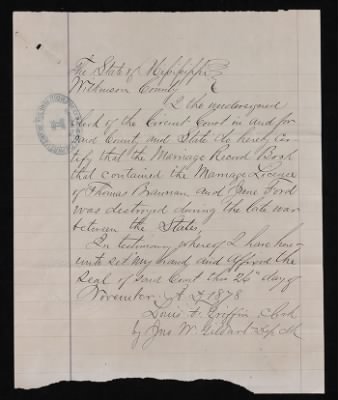 The State of Mississippi
Wilkinson County
I the undersigned
Clerk of the Circuit Court in and for
said County and State do hereby cer-
tify that the Marriage Record Book
that contained the Marriage Licence
of Thomas Brannan and Jane Ford
was destroyed during the late war
between the States,
In testimony whereof I have here
unto set my hand and affixed the
Seal of said Court this 26th day of
November A D 1878
Louis F. Griffin Clerk
by Jno W. Gildart